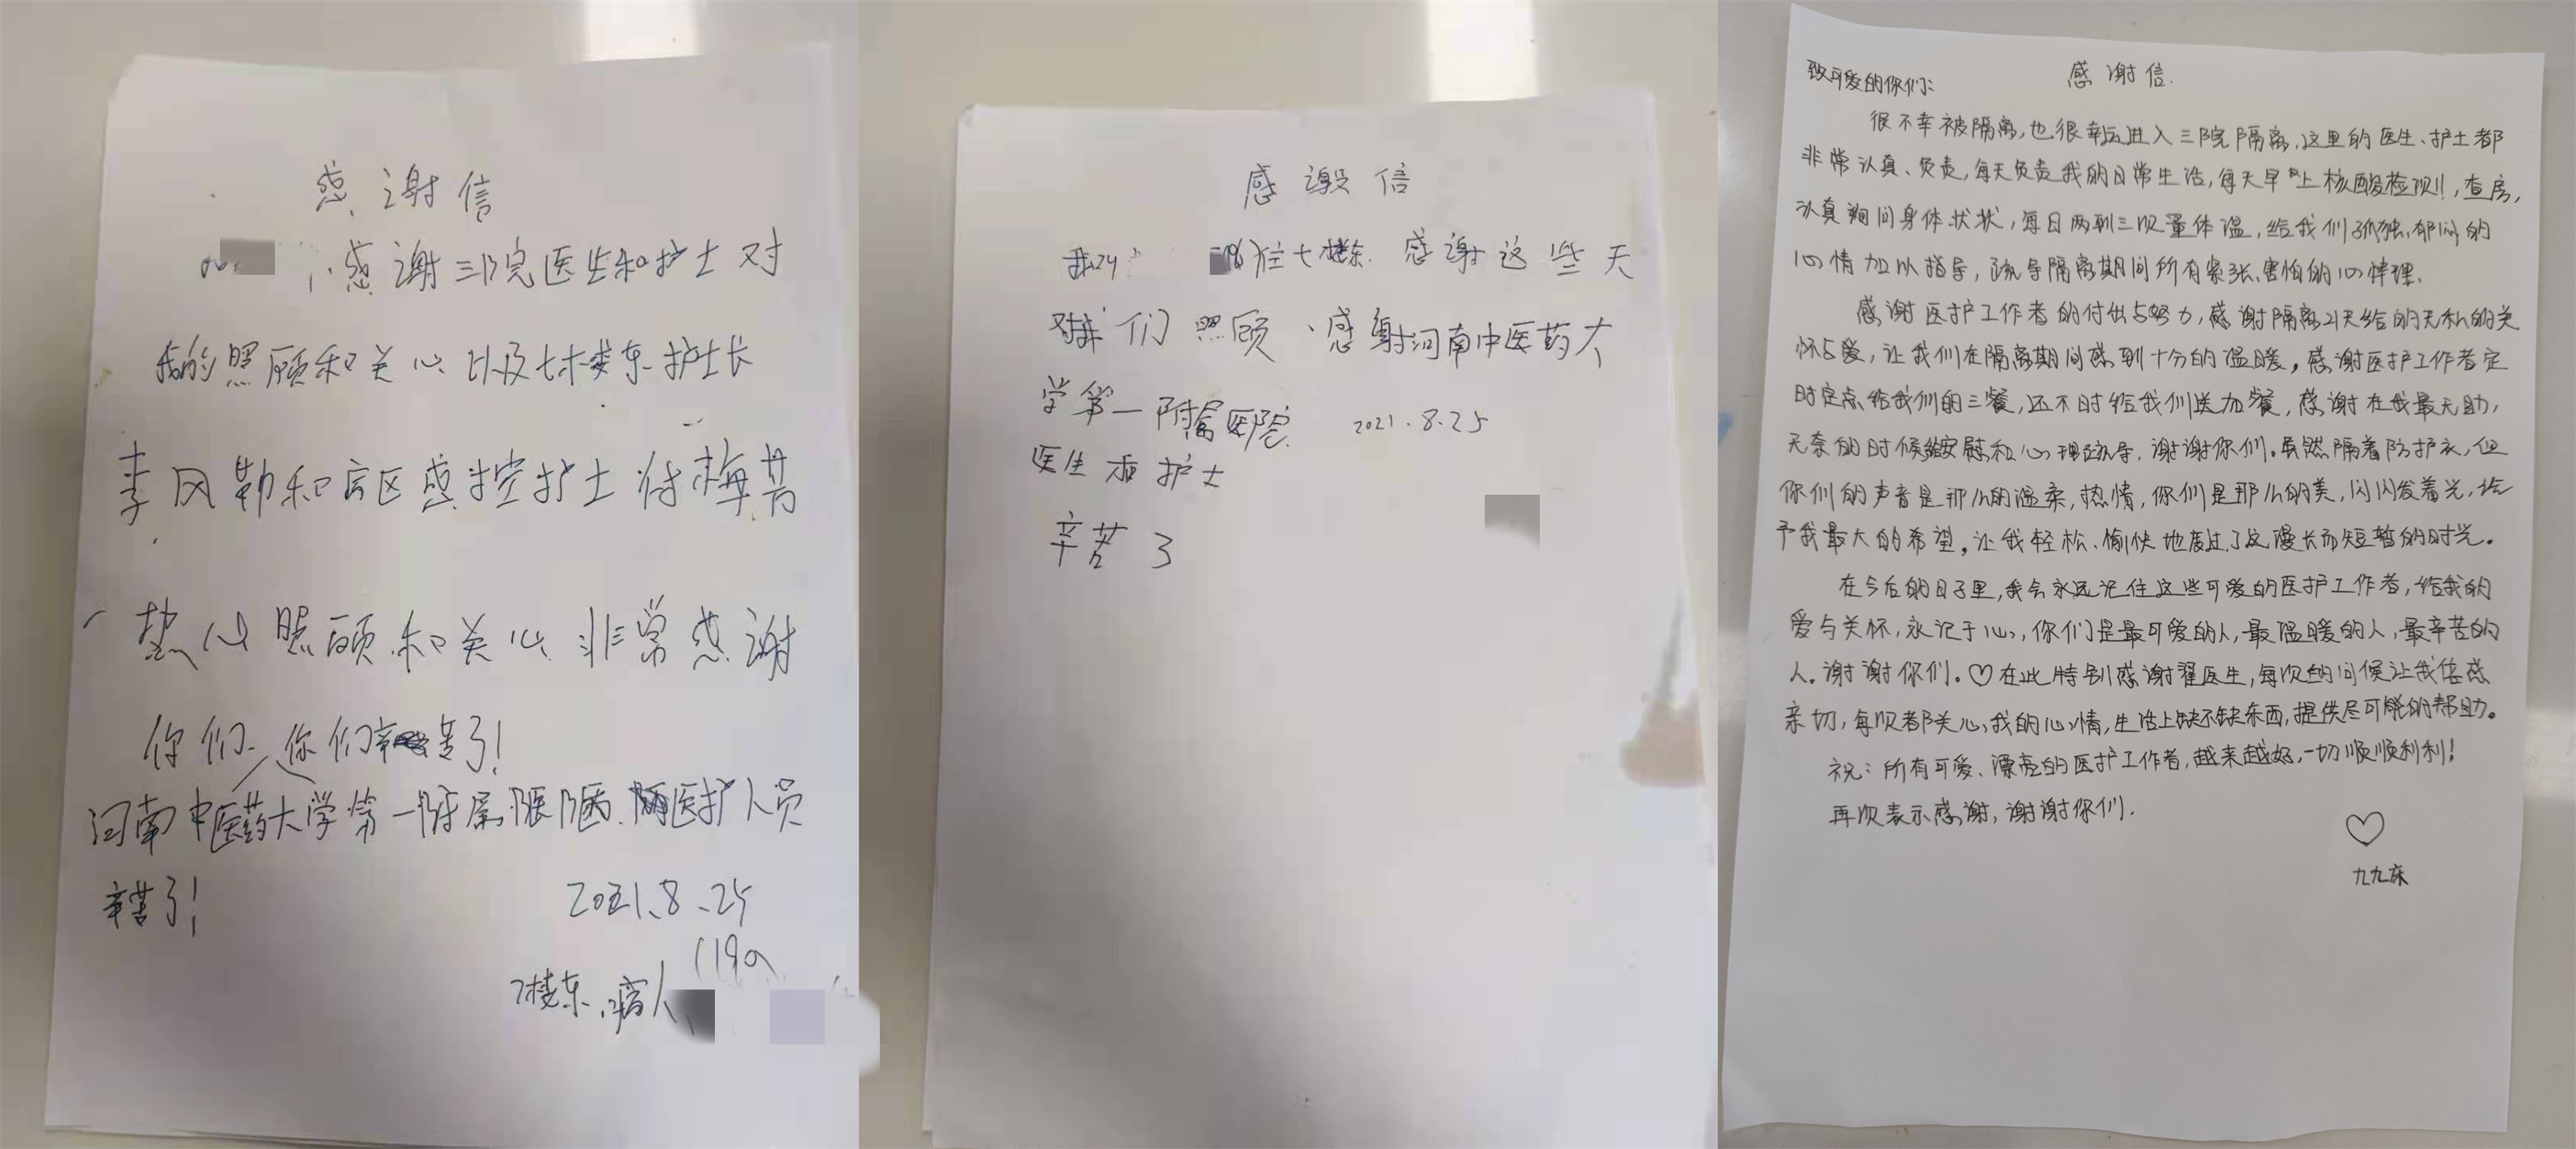 感谢信
感谢三院医生和护士对
我的照顾和关心以及七楼东护士长
李风勒和病区感控护士徐梅芳
热心照顾和关心 非常感谢
你们 你们辛苦了!
河南中医药大学第一附属医院医护人员
辛苦了!
2021.8.25
7楼东 病人
感谢信
住七楼东 感谢这些天
对我们照顾、感谢河南中医药大
学第一附属医院
2021.8.25
医生和护士
辛苦了
感谢信
致可爱的你们:
很不幸被隔离,也很幸运进入三院隔离,这里的医生、护士都
非常认真、负责,每天负责我的日常生活,每天早上核酸检测!!,查房,
认真询问身体状状,每日两到三次量体温,给我们孤独、郁闷的
心情加以指导,疏导隔离期间所有紧张、害怕的心情理。
感谢医护工作者的付出与努力,感谢隔离21天给的无私的关
怀与爱,让我们在隔离期间感到十分的温暖。感谢医护工作者定
时定点给我们的三餐,还不时给我们送加餐,感谢在我最无助,
无奈的时候给安慰和心理疏导,谢谢你们。虽然隔着防护衣,但
你们的声音是那么的温柔,热情,你们是那么的美,闪闪发着光,给
予我最大的希望。让我轻松、愉快地度过了这漫长而短暂的时光。
在今后的日子里,我会永远记住这些可爱的医护工作者,给我的
爱与关怀,永记于心,你们是最可爱的人,最温暖的人,最辛苦的
人。谢谢你们。♡在此特别感谢翟医生,每次的问候让我倍感
亲切,每次都关心我的心情,生活上缺不缺东西,提供尽可能的帮助。
祝:所有可爱、漂亮的医护工作者,越来越好,一切顺顺利利!
再次表示感谢,谢谢你们.
九九床